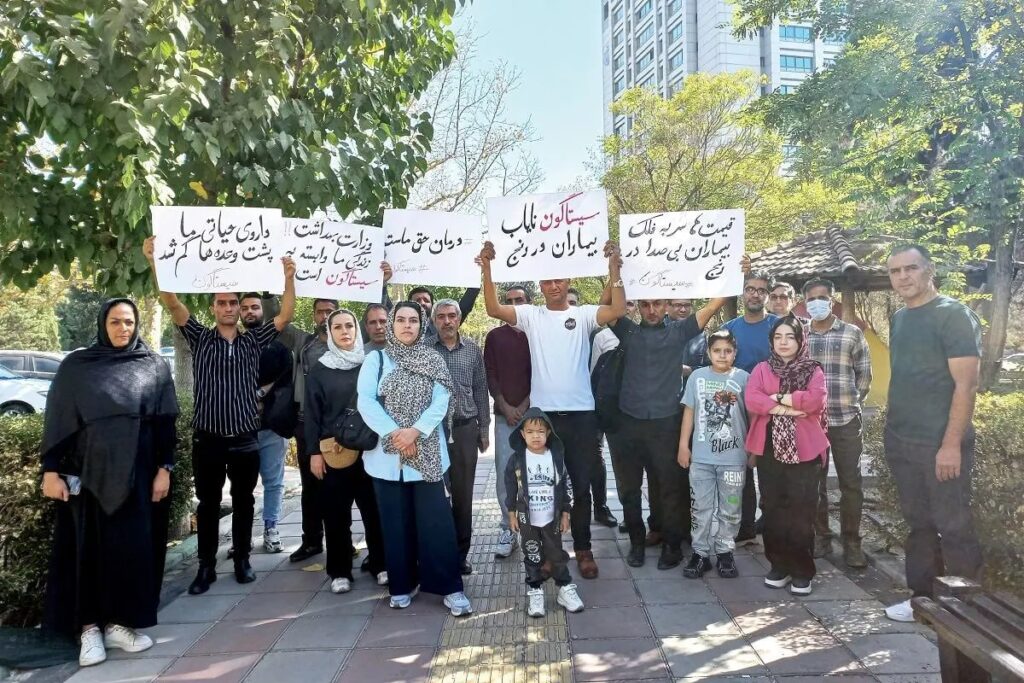 داروی حیاتی ما
پشت وعده‌ها گم شد
سیستاگون
وزارت بهداشت!!
زندگی ما وابسته به
سیستاگون است
درمان حق ماست
#سیستاگون
سیستاگون نایاب
بیماران در رنج
قیمت ها سر به فلک
بیماران بی صدا در
رنج
#سیستاگون
Black
REIN
KING